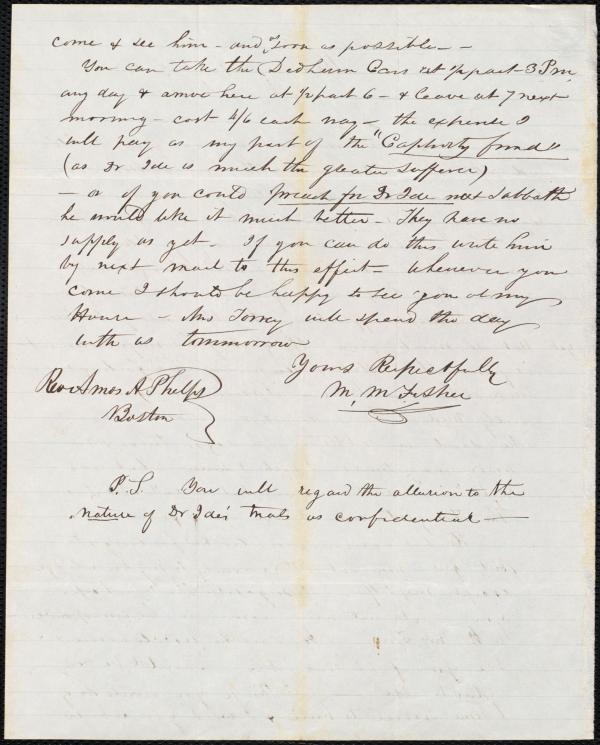 come & see him - and as soon as possible - -
You can take the Dedham Cars at ½ past 3 P.m.
any day & arrive here at ½ past 6 - & leave at 7 next
morning - cost 4/6 each way - the expense I
will pay as my part of the "Captivity fund"
(as Dr Ide is much the greater sufferer)
- or if you could preach for Dr Ide next Sabbath
he would like it much better - They have no
supply as yet - If you can do this write him
by next mail to this effect - Whenever you
come I should be happy to see you at my
House - Mrs Torrey will spend the day
with us tommorrow
Yours Respectfully
M. M Fisher
Rev Amos A. Phelps
Boston
P.S. You will regard the allusion to the
nature of Dr Ide's trials as confidential -